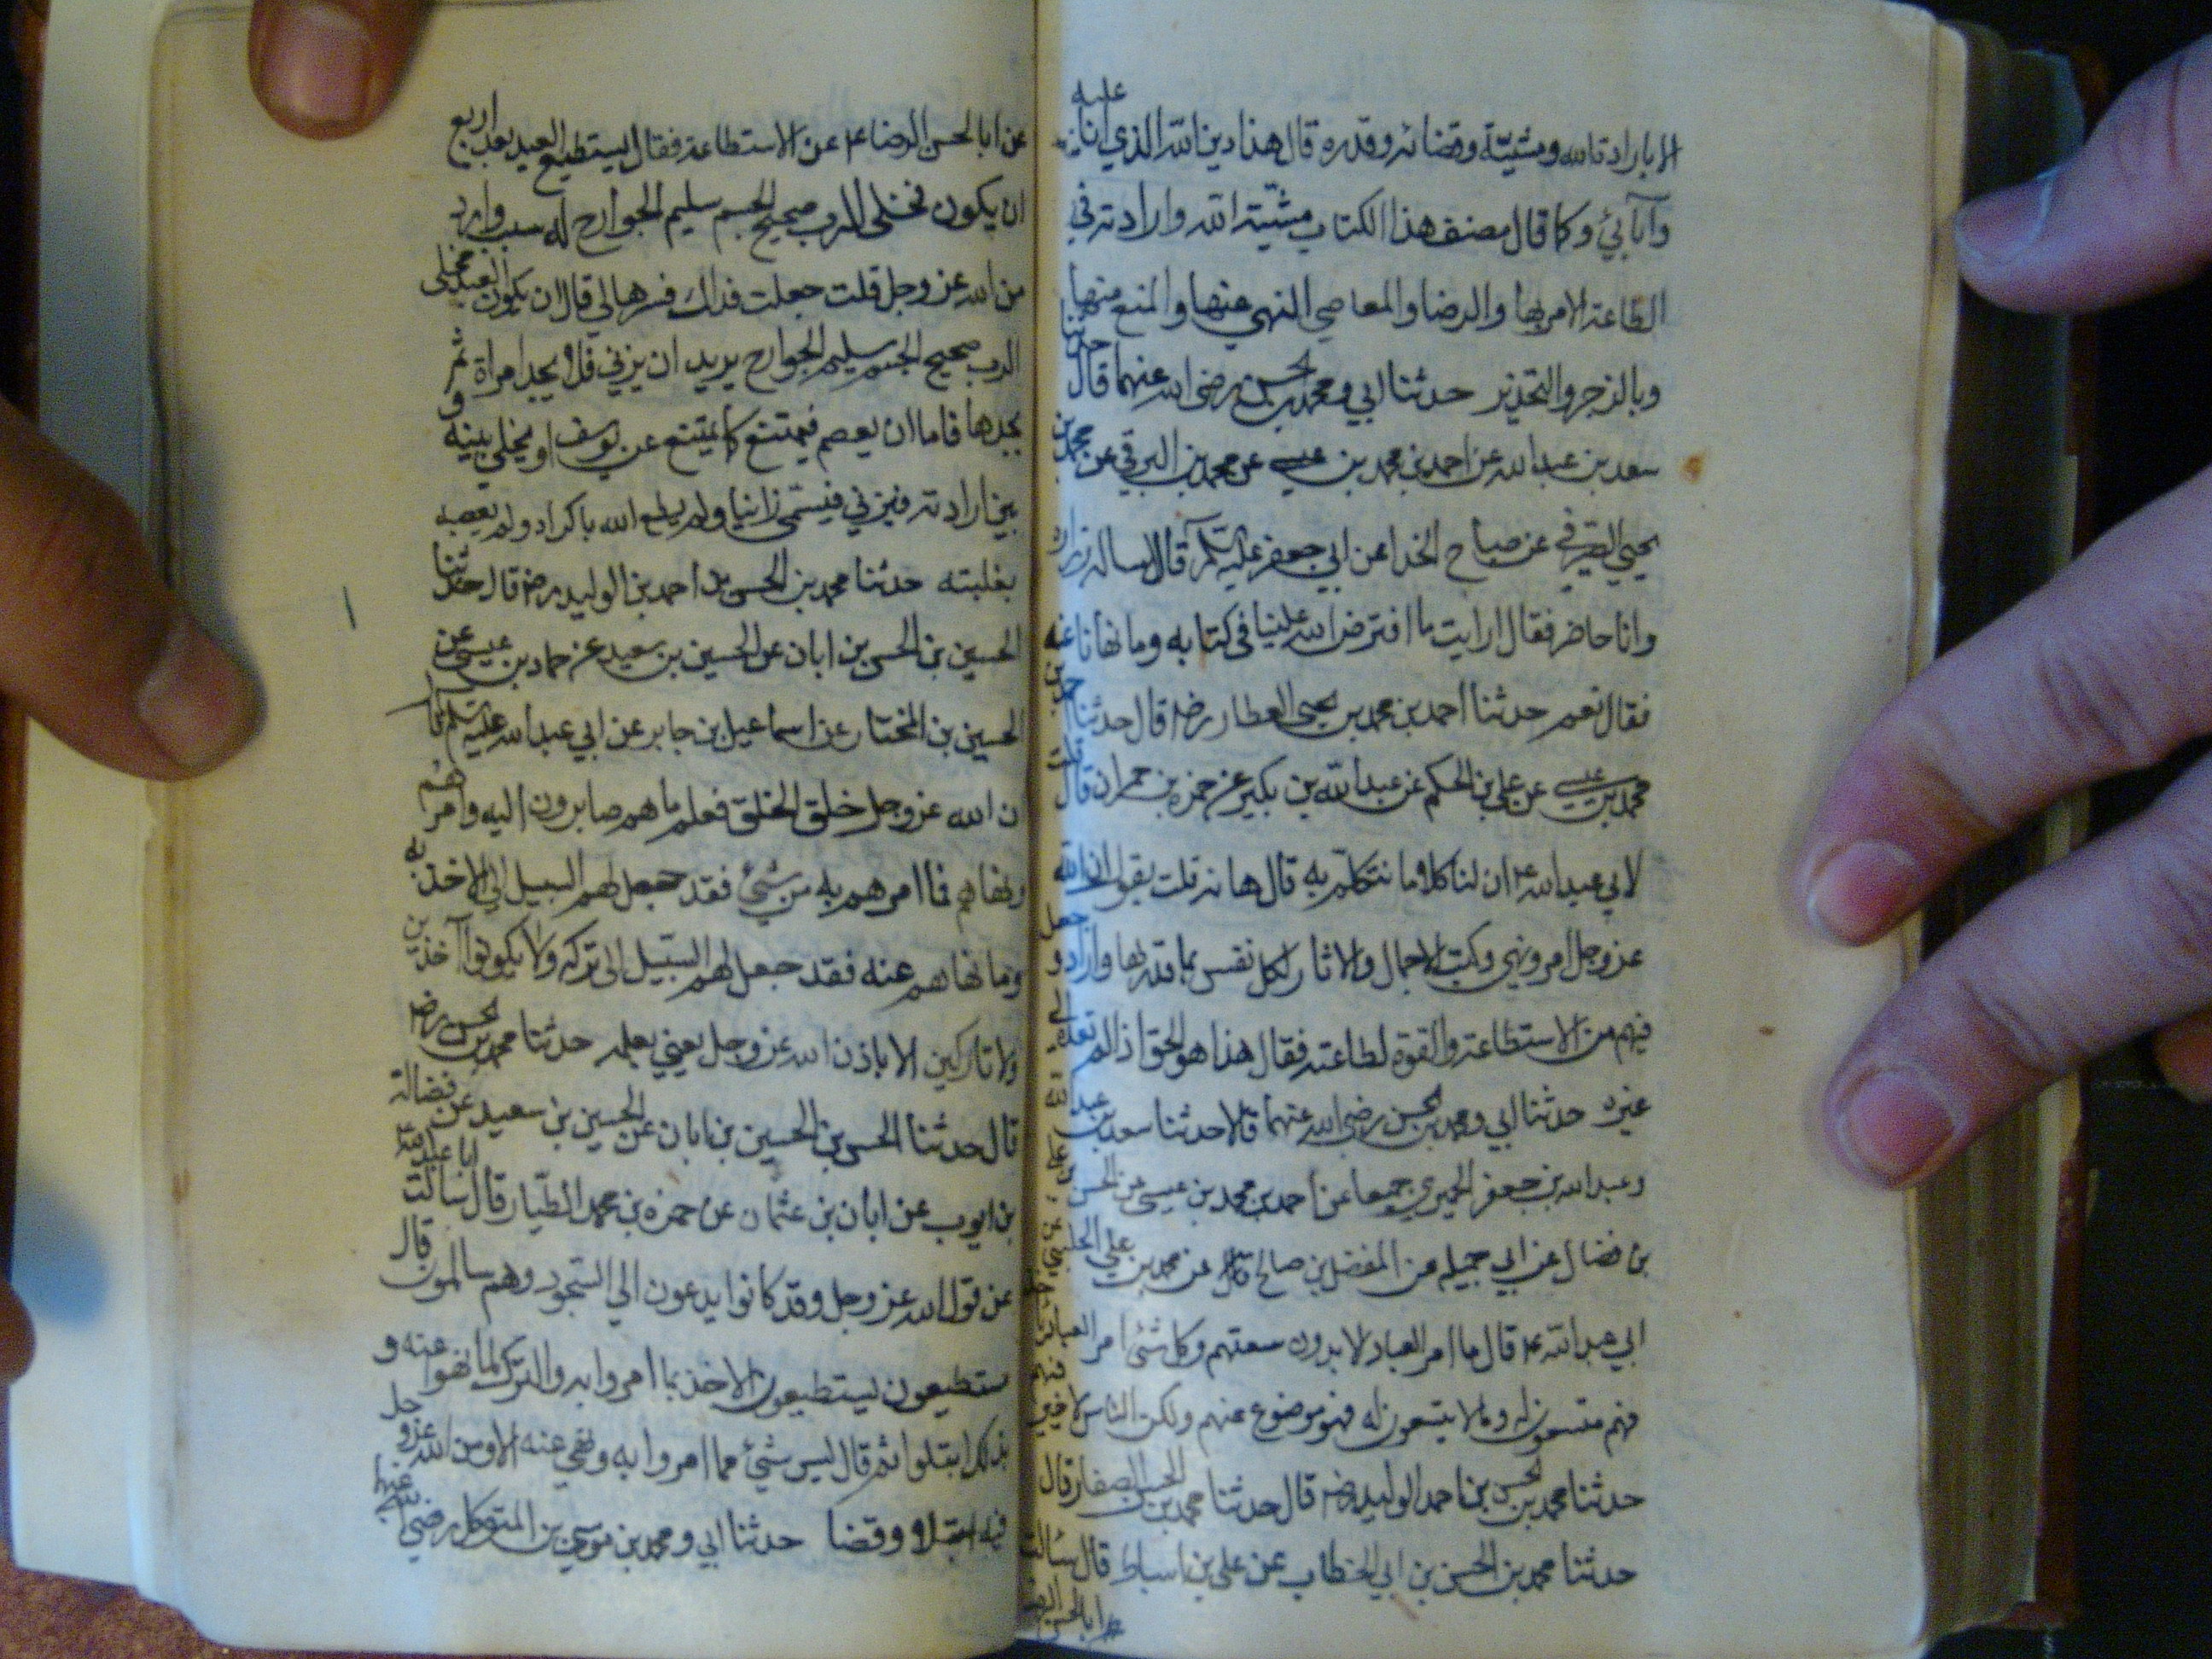 الا بارادة الله ومشيته وقضائه وقدره قال هذا دين الله الذي انا عليه
وآبائي وكما قال مصنف هذا الكتاب مشية الله وارادته في
الطاعة الامر بها والرضا والمعاصي النهي عنها والمنع منها
وبالزجر والتحذير حدثنا ابي ومحمد بن الحسن رضي الله عنهما قال حدثنا
سعد بن عبد الله عن احمد بن محمد بن عيسى عن محمد بن البرقي عن محمد بن
يحيى الصيرفي عن صباح الخدا عن ابي جعفر عليه السلم قال ساله زرارة
وانا حاضر فقال ارايت ما افترض الله علينا في كتابه وما نهانا عنه
فقال نعم حدثنا احمد بن محمد بن يحيى العطار رضه قال حدثنا احمد بن
محمد بن عيسى عن علي بن الحكم عن عبد الله بن بكير عن حمزة بن حمران قال قلت
لابي عبد الله ع ان لنا كلاما نتكلم به قال هاته قلت يقول ان الله
عز وجل امر ونهي وكتب الاجال والاثار لكل نفس بما قدر لها واراد وجعل
فيهم من الاستطاعة والقوة لطاعته فقال هذا هو الحق اذا لم تعده الى
غيره حدثنا ابي ومحمد بن الحسن رضي الله عنهما قالا حدثنا سعد بن عبد
وعبد الله بن جعفر الحميري جميعا عن احمد بن محمد بن عيسى عن الحسن
بن فضال عن ابي جميله عن المفضل بن صالح عن محمد بن علي الحلبي
ابي عبد الله ع قال ما امر العباد الا بدون سعتهم وكل شئ امر العباد
فهم متسعون له وما لا يتسعون له فهو موضوع عنهم ولكن الناس لا خير فيهم
حدثنا محمد بن الحسن بن احمد الوليد رضه قال حدثنا محمد بن الحسن الصفار قال
حدثنا محمد بن الحسن بن ابي الخطاب عن علي بن اسباط قال سالت
ابا الحسن الرضا
عن ابا الحسن الرضا ع عن الاستطاعة فقال يستطيع العبد بعد اربع
ان يكون مخلى الرب صحيح الجسم سليم الجوارح له سبب وارد
من الله عز وجل قلت جعلت فداك فسرها لي قال ان يكون العبد مخلى
الرب صحيح الجسم سليم الجوارح يريد ان يزني فلا يجد امراة ثم
يجدها فاما ان يعصم فيمتنع كما يمتنع عن يوسف او يخلي بينه و
بين ارادته فيزني فيسمى زانيا ولم يطع الله باكراه ولم يعصه
بغلبته حدثنا محمد بن الحسن بن احمد بن الوليد رضه قال حدثنا
الحسين بن الحسن بن ابان عن الحسين بن سعيد عن حماد بن عيسى عن
الحسين بن المختار عن اسماعيل بن جابر عن ابي عبد الله عليه السلم قال
ن الله عز وجل خلق الخلق فعلم ما هم صايرون اليه وامرهم
ونهاهم فما امرهم به من شئ فقد جعل لهم السبيل الى الاخذ به
وما نهاهم عنه فقد جعل لهم السبيل الى تركه ولا يكونوا آخذين
ولا تاركين الا باذن الله عز وجل يعني يعلمه حدثنا محمد بن الحسن رضه
قال حدثنا الحسن بن الحسين بن ابان عن الحسين بن سعيد عن فضالة
بن ايوب عن ابان بن عثمان عن حمزة بن محمد الطيار قال سالت ابا عبد الله
عن قول الله عز وجل وقد كانوا يدعون الى السجود وهم سالمون قال
مستطيعون يستطيعون الاخذ بما امروا به والترك لما نهوا عنه و
بذلك ابتلوا ثم قال ليس شئ مما امروا به ونهي عنه الا ومن الله عز وجل
فيه ابتلاء وقضا حدثنا ابي ومحمد بن موسى بن المتوكل رضي الله عنهما